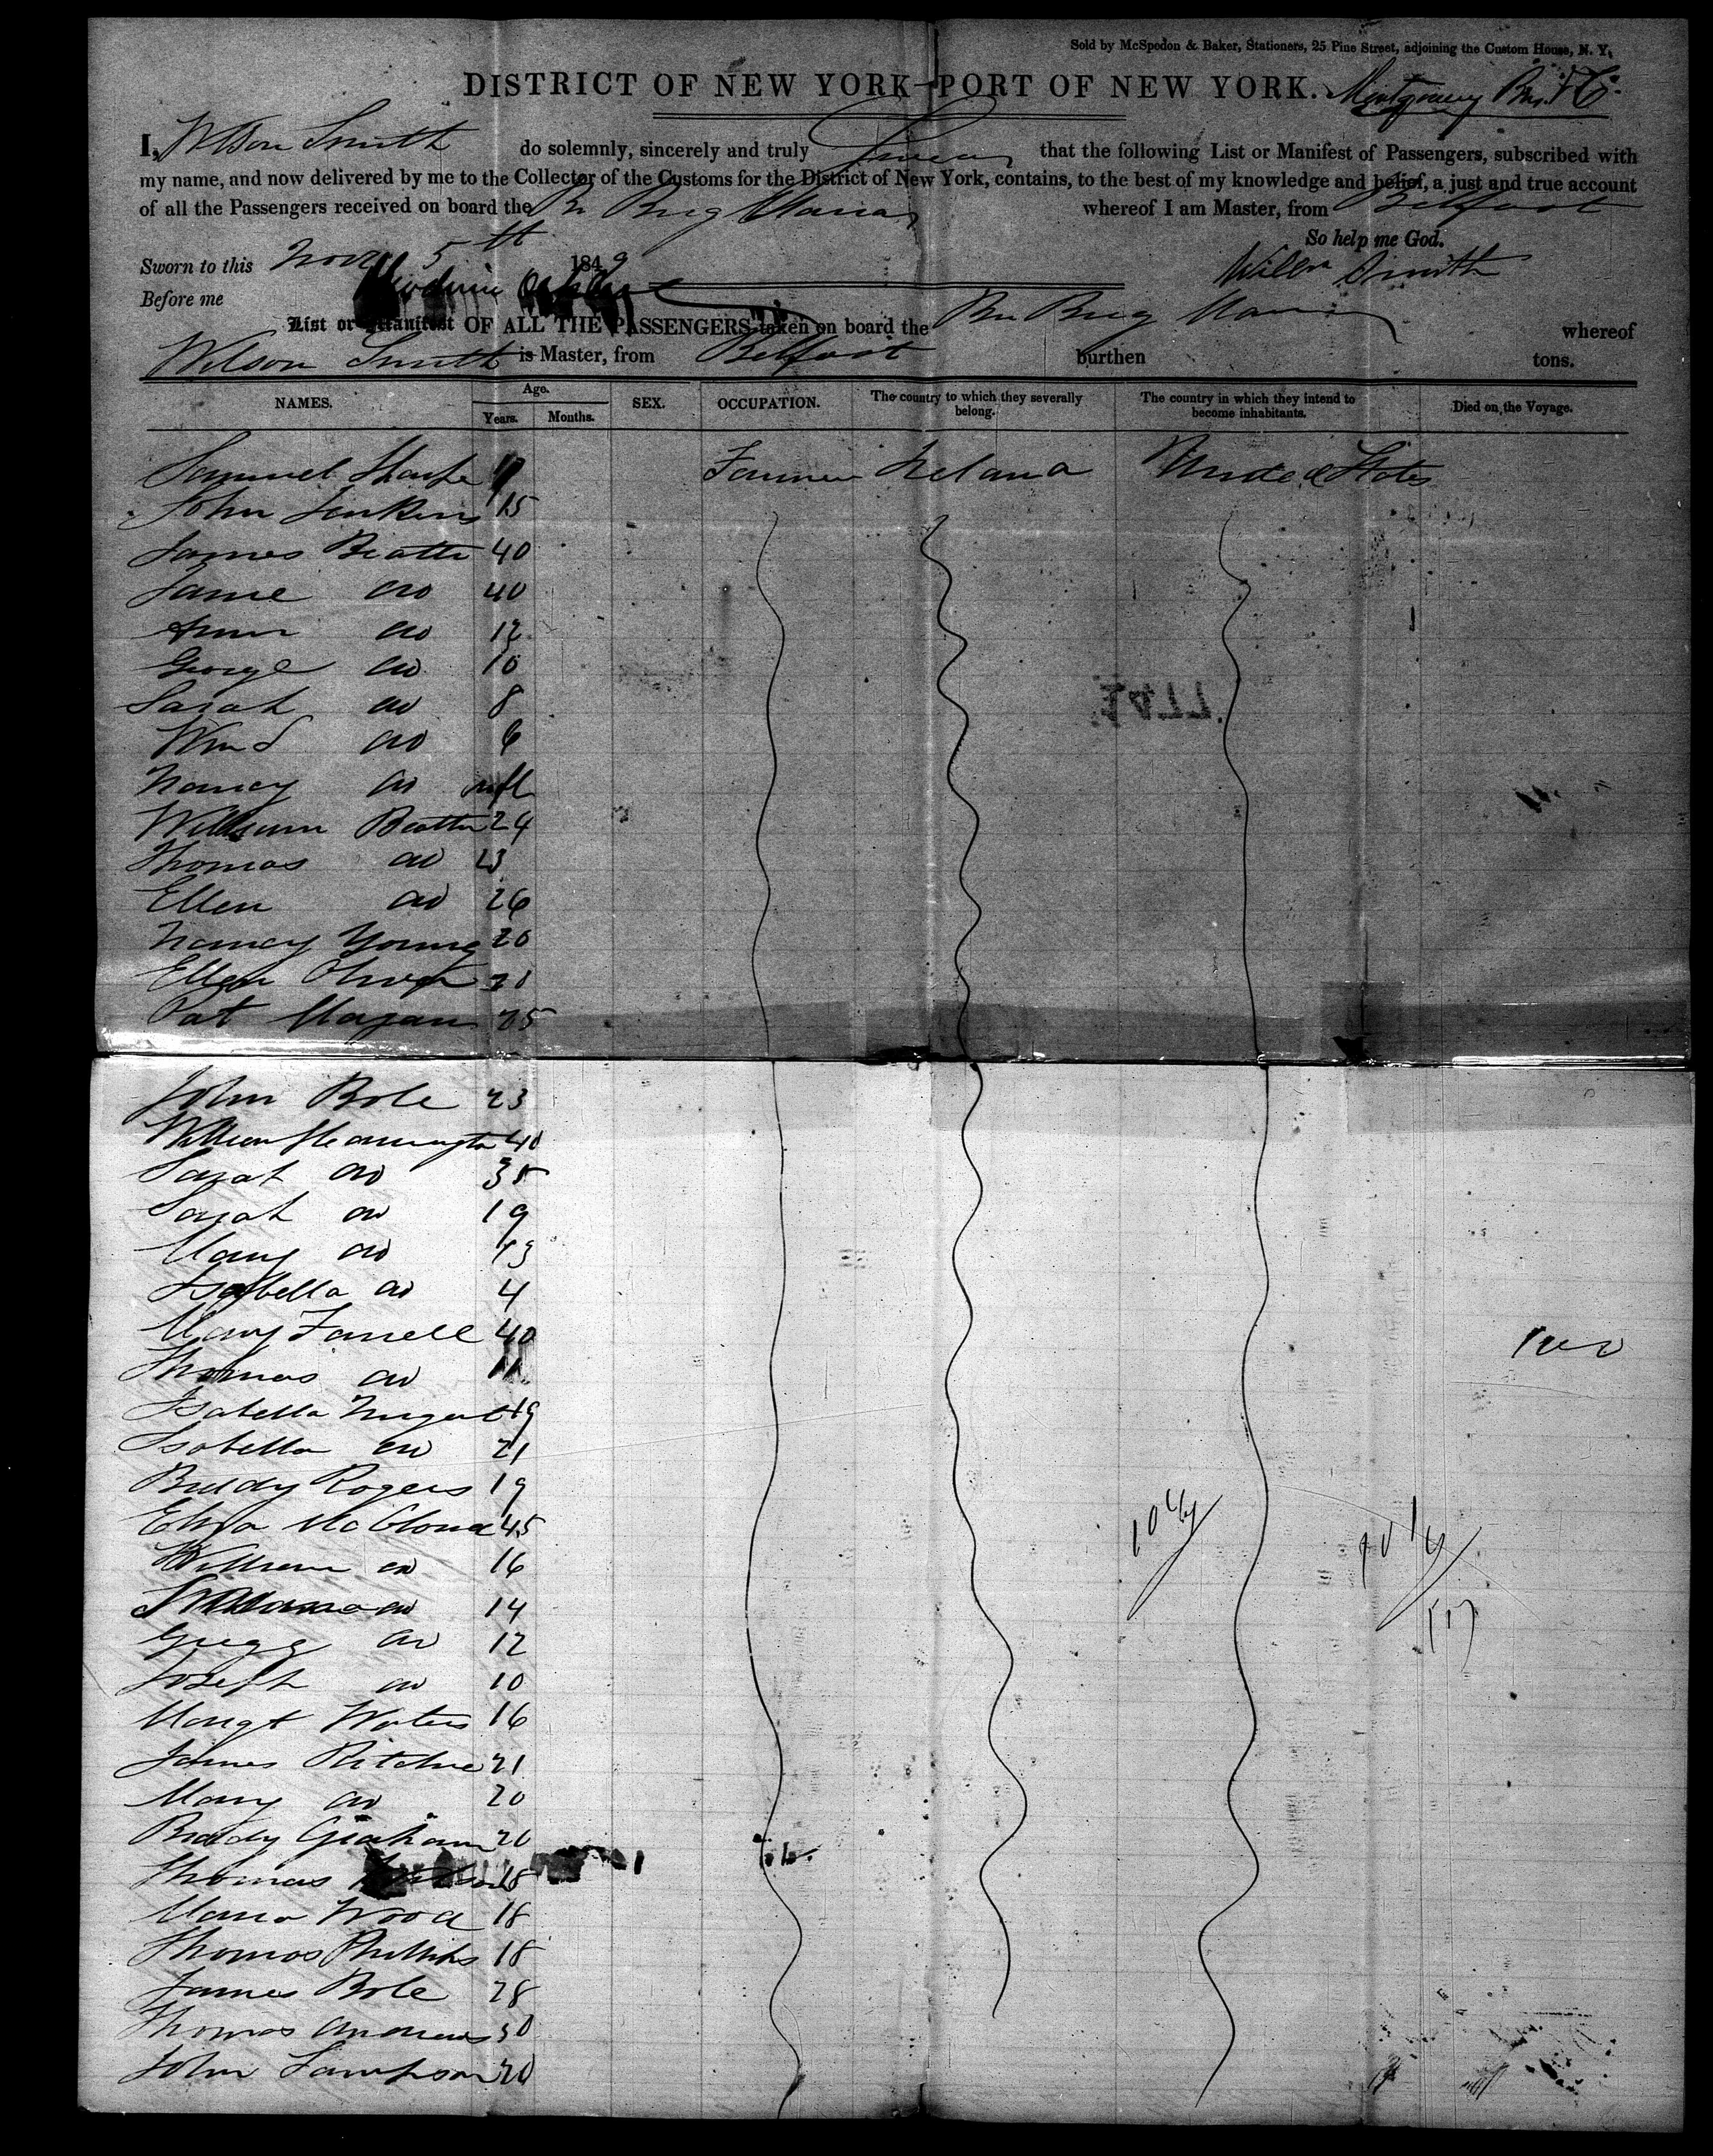 Sold by McSpedon & Baker, Stationers, 25 Pine Street, adjoining the Custom House, N. Y.
DISTRICT OF NEW YORK—PORT OF NEW YORK. Montgomery Bros & Co.
I, Wilson Smith do solemnly, sincerely and truly Swear that the following List or Manifest of Passengers, subscribed with
my name, and now delivered by me to the Collector of the Customs for the District of New York, contains, to the best of my knowledge and belief, a just and true account
of all the Passengers received on board the Br Brig Maria whereof I am Master, from Belfast
So help me God.
Sworn to this Novr 5th 1849 Wilson Smith
Before me
List or Manifest OF ALL THE PASSENGERS taken on board the Br Brig Maria whereof
Wilson Smith is Master, from Belfast burthen tons.
NAMES. Age. Years. Months. SEX. OCCUPATION. The country to which they severally belong. The country in which they intend to become inhabitants. Died on the Voyage.
Samuel Sharpe Farmer Ireland United States
John Jenkins 15
James Beatte 40
Jane do 40
Ann do 12
George do 10
Sarah do 8
do 6
Nancy do infl
William Beatte 24
Thomas do 23
Ellen do 26
Nancy Young 20
Ellen Oliver 20
Pat 25
John Bole 23
William 40
Sarah do 35
Sarah do 19
Mary do 13
Isabella do 4
Mary Farrell 40
Thomas do 11
Isabella Nugent 19
Isabella do 21
Biddy Rogers 19
Eliza McCloud 45
William do 16
do 14
Gregg do 12
Joseph do 10
Margt Waters 16
James Ritchie 21
Mary do 20
Biddy Graham 20
Thomas 18
Maria Wood 18
Thomas Phillips 18
James Bole 28
Thomas Andrews 30
John Sampson 20